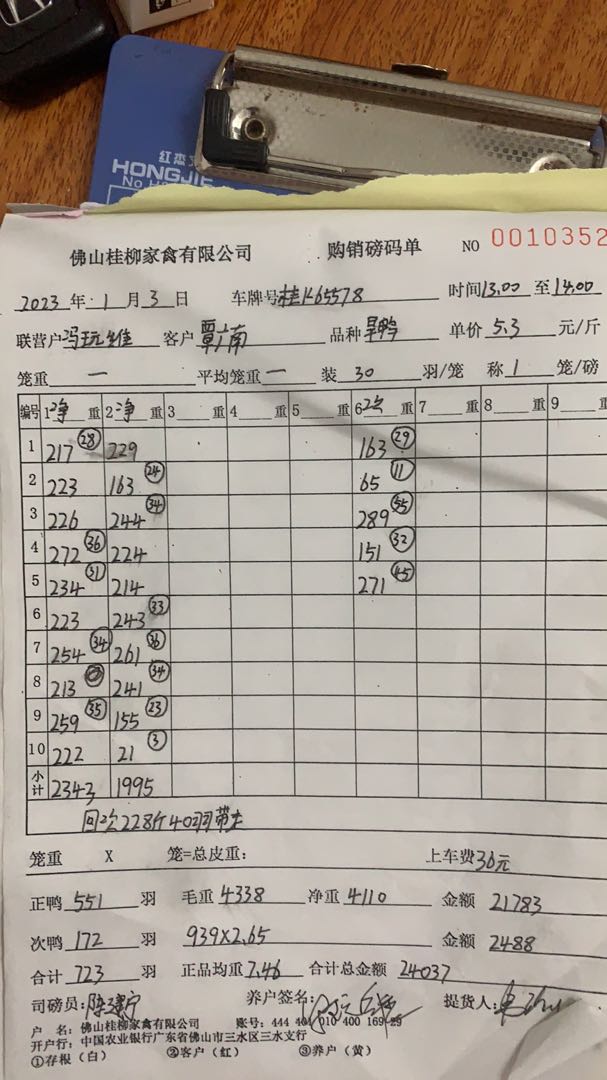 红杰
HONGJIE
佛山桂柳家禽有限公司 购销磅码单 NO 0010352
2023 年 1 月 3 日 车牌号 桂K65578 时间 13.00 至 14.00
联营户 客户 覃广南 品种 单价 5.3 元/斤
笼重 一 平均笼重 一 装 30 羽/笼 称 1 笼/磅
编号 1 净 重 2 净 重 3 重 4 重 5 重 6 次 重 7 重 8 重 9
1 217 ㉘ 229 163 ㉙
2 223 163 ㉔ 65 ⑪
3 226 244 ㉞ 289 55
4 272 ㊱ 224 151 ㉜
5 234 ㉛ 214 271 ㊺
6 223 243 ㉝
7 254 ㉞ 261 ㊱
8 213 241 ㉞
9 259 ㉟ 155 ㉓
10 222 21 ③
小计 2343 1995
回次228斤40羽带走
笼重 X 笼=总皮重: 上车费 36元
正鸭 551 羽 毛重 4338 净重 4110 金额 21783
次鸭 172 羽 939×2.65 金额 2488
合计 723 羽 正品均重 7.46 合计总金额 24037
司磅员: 养户签名: 提货人:
户 名: 佛山桂柳家禽有限公司 账号: 444 40 910 400 169 29
开户行: 中国农业银行广东省佛山市三水区三水支行
①存根(白) ②客户(红) ③养户(黄)